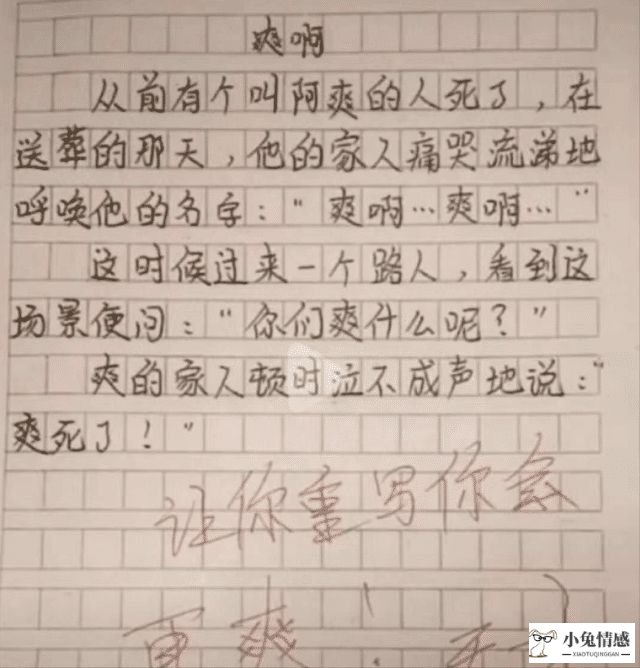 爽啊
从前有个叫阿爽的人死了,在
送葬的那天,他的家人痛哭流涕地
呼唤他的名字:“爽啊…爽啊…”
这时候过来一个路人,看到这
场景便问:“你们爽什么呢?”
爽的家人顿时泣不成声地说:“
爽死了!”
让你重写你会
更爽!
小兔情感
XIAOTUQINGGAN